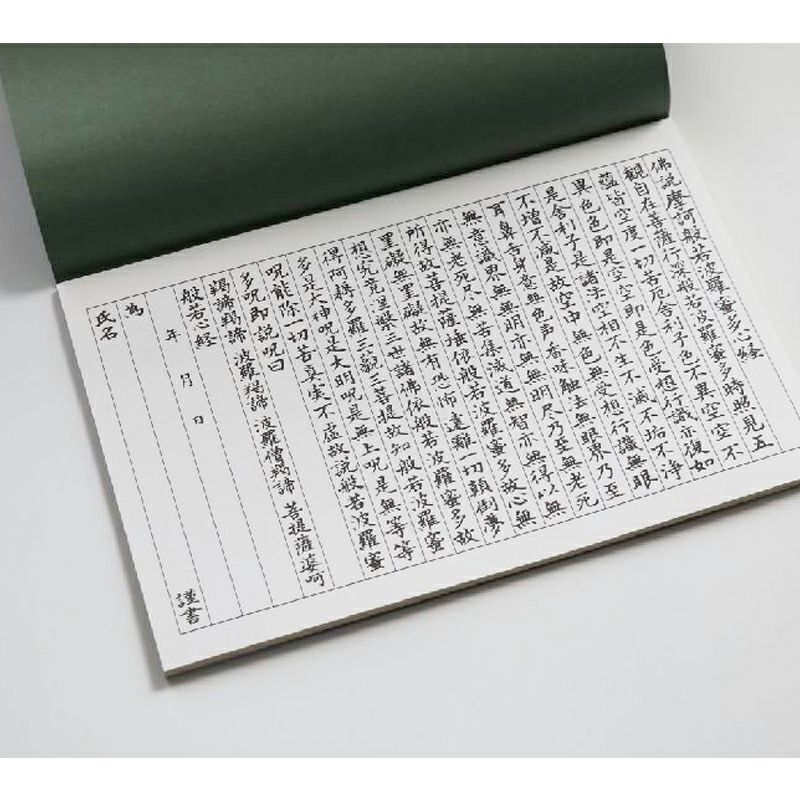 佛說摩訶般若波羅蜜多心經
觀自在菩薩行深般若波羅蜜多時照見五
蘊皆空度一切苦厄舍利子色不異空空不
異色色即是空空即是色受想行識亦復如
是舍利子是諸法空相不生不滅不垢不淨
不增不減是故空中無色無受想行識無眼
耳鼻舌身意無色声香味触法無眼界乃至
無意識界無無明亦無無明尽乃至無老死
亦無老死尽無苦集滅道無智亦無得以無
所得故菩提薩埵依般若波羅蜜多故心無
罣礙無罣礙故無有恐怖遠離一切顛倒夢
想究竟涅槃三世諸佛依般若波羅蜜多故
得阿耨多羅三藐三菩提故知般若波羅蜜
多是大神呪是大明呪是無上呪是無等等
呪能除一切苦真実不虚故説般若波羅蜜
多呪即説呪曰
羯諦羯諦 波羅羯諦 波羅僧羯諦 菩提薩婆訶
般若心経
年 月 日
為
氏名 謹書